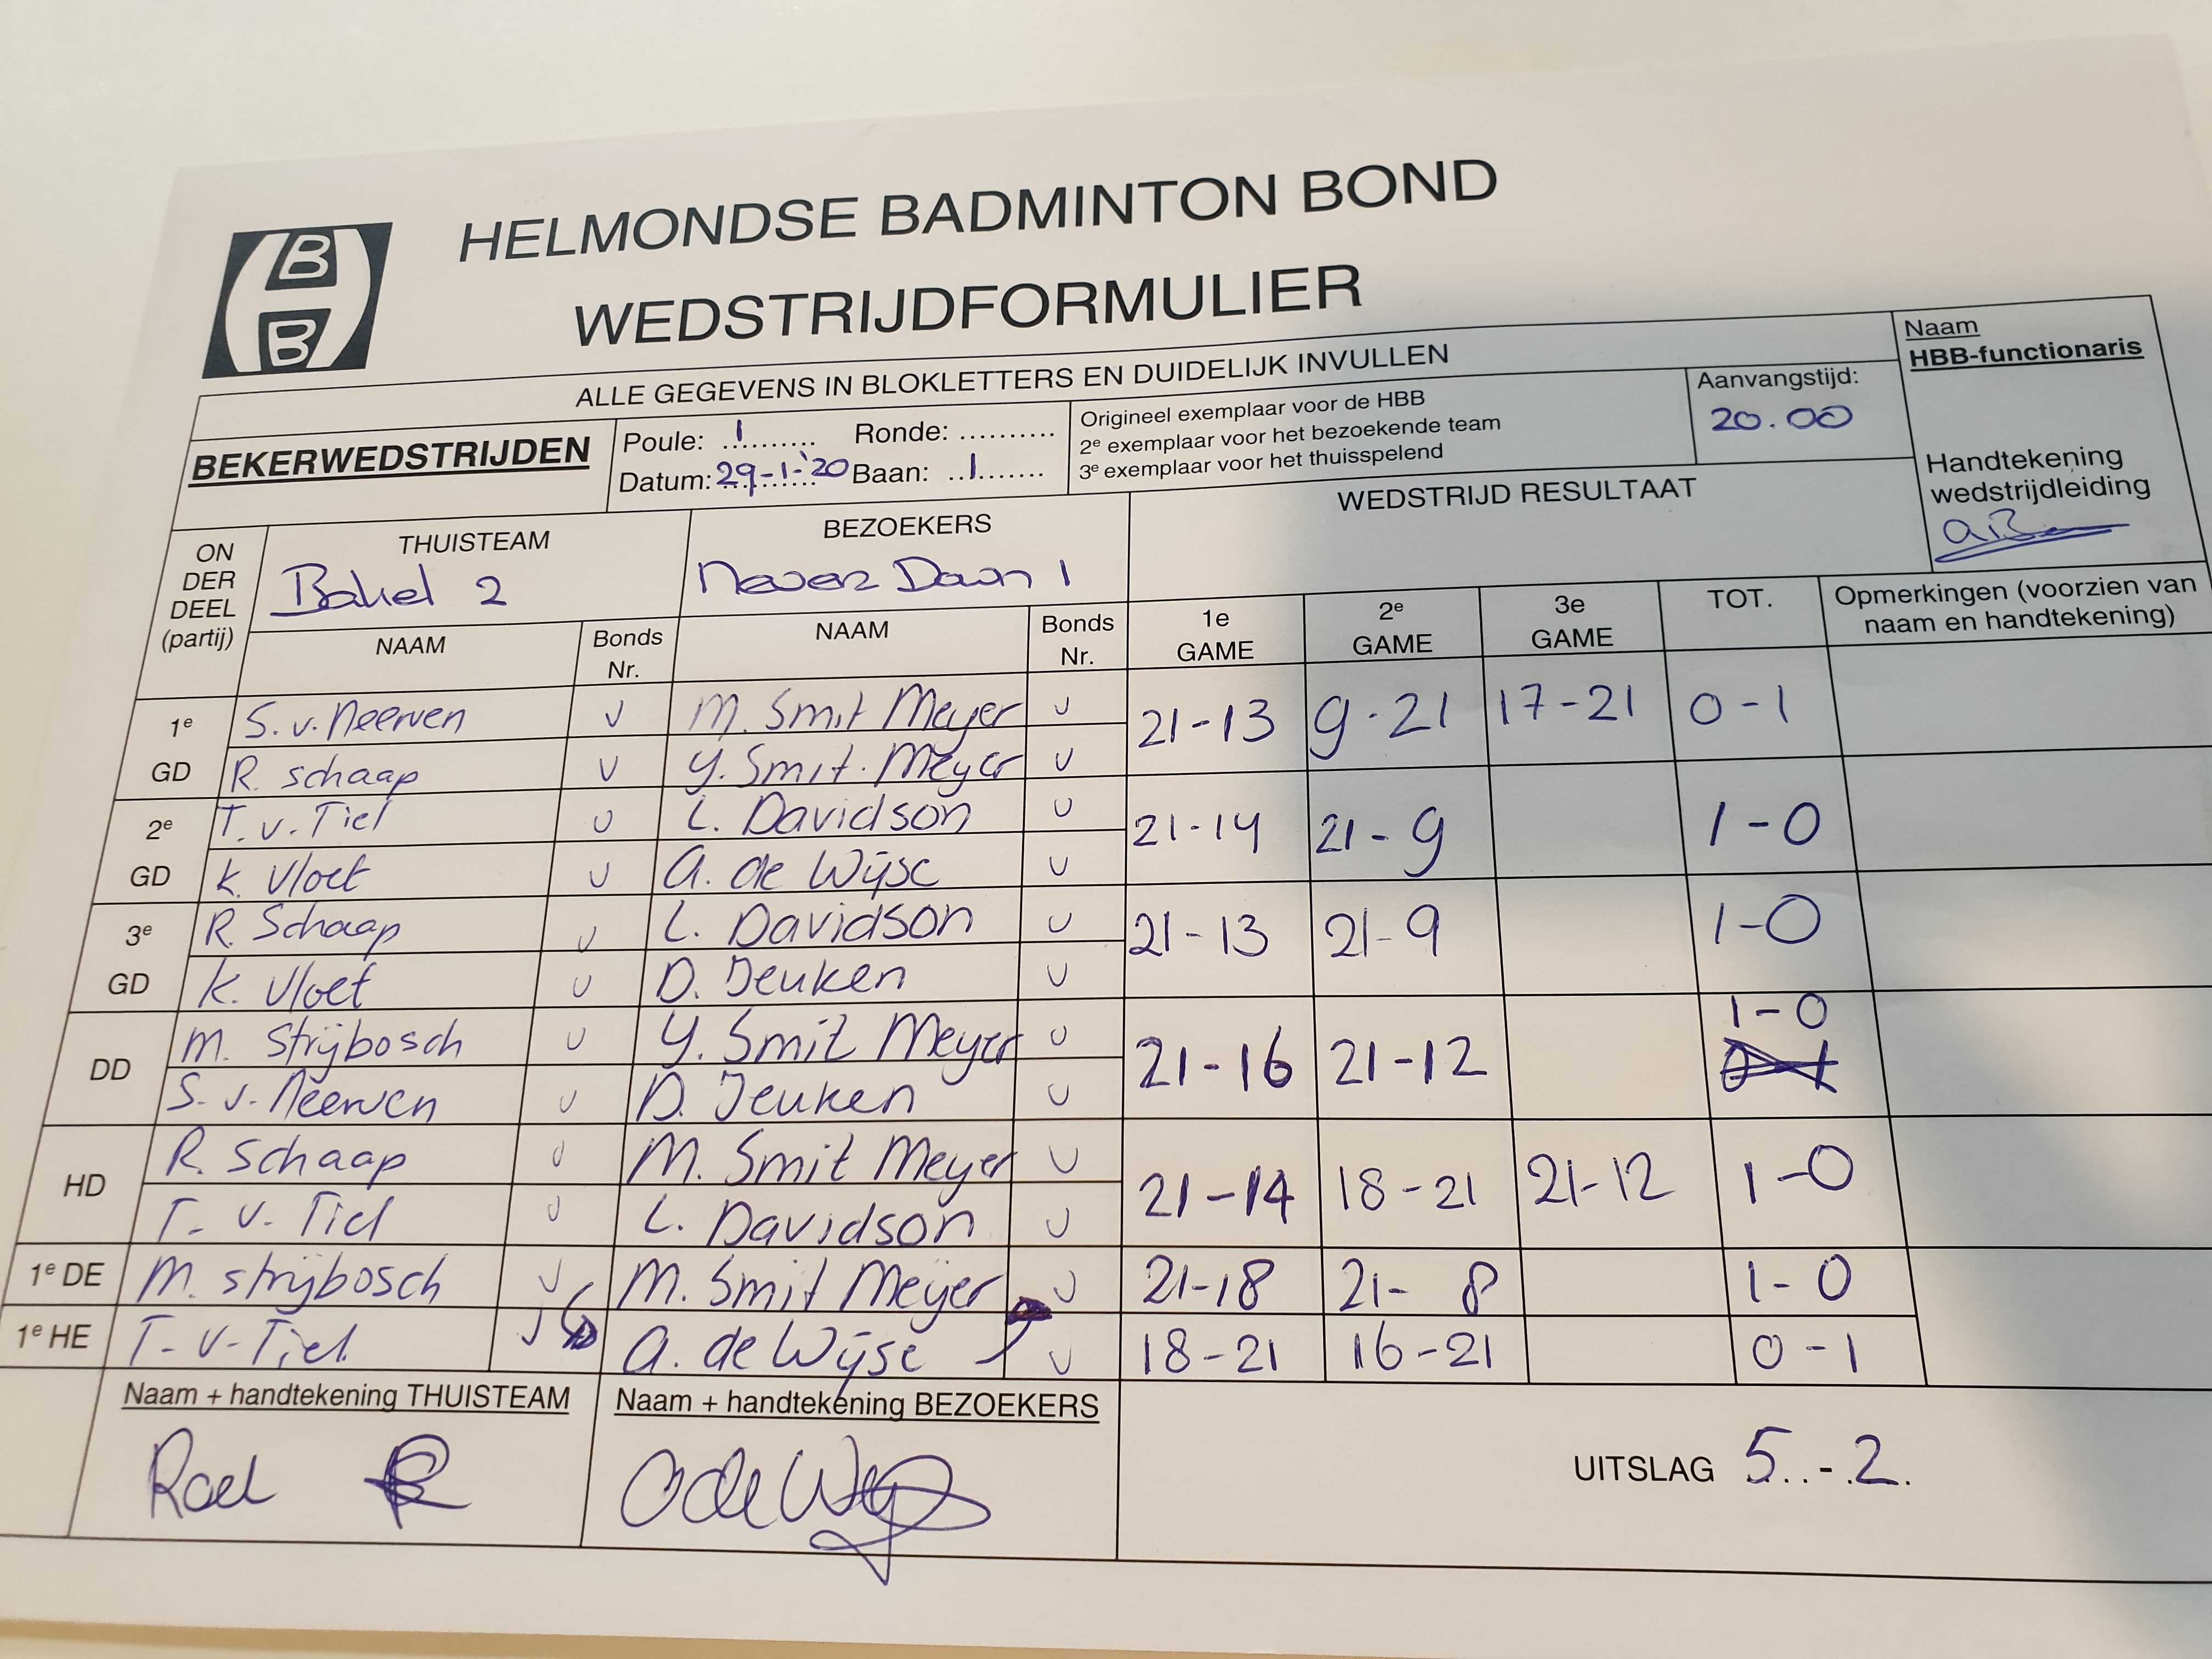 HBB
HELMONDSE BADMINTON BOND
WEDSTRIJDFORMULIER
ALLE GEGEVENS IN BLOKLETTERS EN DUIDELIJK INVULLEN
Naam
HBB-functionaris
BEKERWEDSTRIJDEN
Poule: 1 Ronde: ..........
Datum: 29-1-'20 Baan: 1
Origineel exemplaar voor de HBB
2e exemplaar voor het bezoekende team
3e exemplaar voor het thuisspelend
Aanvangstijd:
20.00
Handtekening
wedstrijdleiding
ON
DER
DEEL
(partij)
THUISTEAM
Bakel 2
BEZOEKERS
Never Down 1
WEDSTRIJD RESULTAAT
NAAM Bonds Nr. NAAM Bonds Nr. 1e GAME 2e GAME 3e GAME TOT. Opmerkingen (voorzien van
naam en handtekening)
1e S. v. Neerven v M. Smit Meyer v 21-13 9-21 17-21 0-1
GD R. Schaap v Y. Smit. Meyer v
2e T. v. Tiel v L. Davidson v 21-14 21-9 1-0
GD K. Vloet v A. de Wijse v
3e R. Schaap v L. Davidson v 21-13 21-9 1-0
GD K. Vloet v D. Jeuken v
DD M. Strijbosch v Y. Smit Meyer v 21-16 21-12 1-0
S. v. Neerven v D. Jeuken v 0-1
HD R. Schaap v M. Smit Meyer v 21-14 18-21 21-12 1-0
T. v. Tiel v L. Davidson v
1e DE M. Strijbosch v M. Smit Meyer v 21-18 21-8 1-0
1e HE T. v. Tiel v A. de Wijse v 18-21 16-21 0-1
Naam + handtekening THUISTEAM Naam + handtekening BEZOEKERS
Roel A de Wijse
UITSLAG 5..-.2.